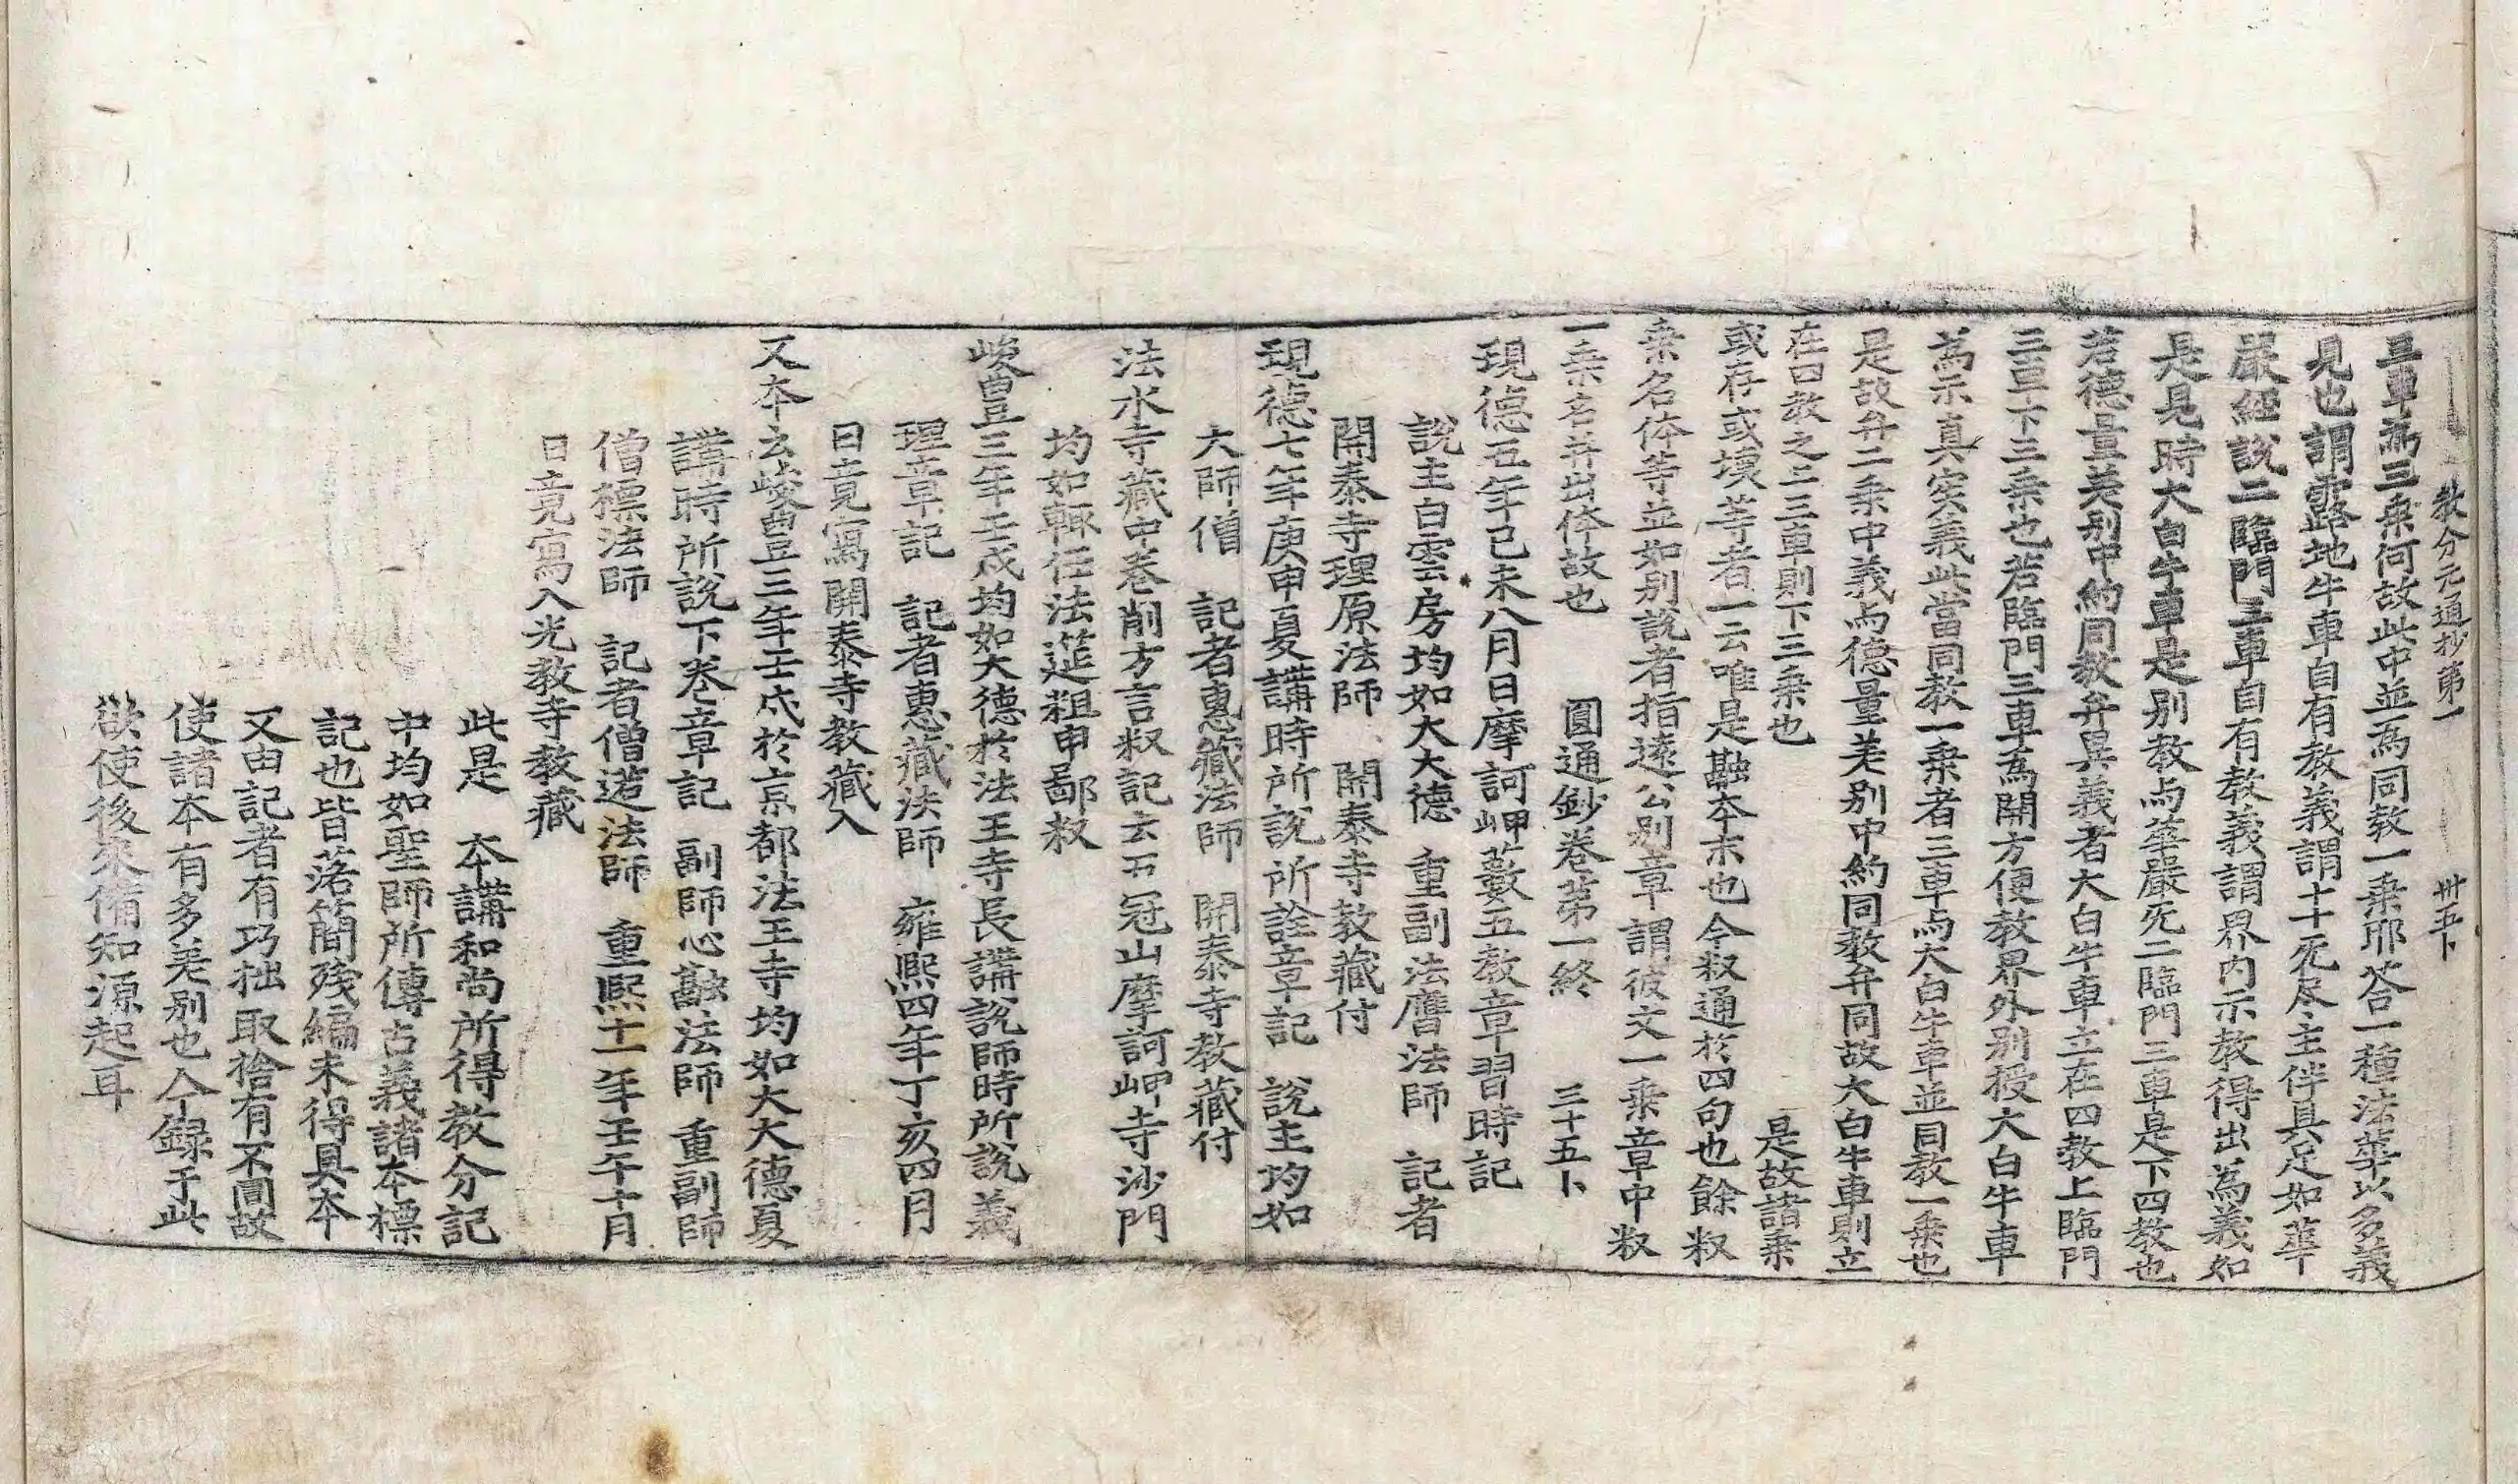 教分元通抄第一 卅五卜
三車爲三乗何故此中並爲同教一乗耶荅一種法華以多義
見也謂露地牛車自有教義謂十十无尽主伴具足如華
嚴經說二臨門三車自有教義謂界内示教得出爲義如
是是時大白牛車是别教与華嚴死二臨門三車是下四教也
若德量差别中約同教弁異義者大白牛車立在四教上臨門
三車下三乗也若臨門三車爲開方便教界外别授大白牛車
爲示真実義此當同教一乗者三車与大白牛車並同教一乗也
是故弁二乗中義与德量差别中約同教弁同故大白牛車則立
在四教之三三車則下三乗也 是故諸乗
或存或壞等者一云唯是融夲末也今釈通於四句也餘釈
乗名体等並如别說者指遠公别章謂彼文一乗章中釈
一乗名并出体故也 圓通鈔卷第一終 三十五卜
現德五年己未八月日摩訶岬藪五教章習時記
說主白雲房均如大大德 重副法膺法師 記者
開泰寺理原法師 開泰寺教藏付
現德七年庚申夏講時所說所詮章記 說主均如
大師僧 記者惠藏法師 開泰寺教藏付
法水寺藏中卷削方言釈記云五冠山摩訶岬寺沙門
均如輒任法筵粗申鄙釈
峻豊三年壬戌均如大德於法王寺長講說師時所說義
理章記 記者惠藏法師 雍熙四年丁亥四月
日竟寫開泰寺教藏入
又夲云峻豊三年壬戌於京都法王寺均如大大德夏
講時所說下卷章記 副師心融法師 重副師
僧標法師 記者僧造法師 重熙十一年壬午十月
日竟寫入光教寺教藏
此是 夲講和尚所得教分記
中均如聖師所傳古義諸夲標
記也皆落簡殘編未得具夲
又由記者有巧拙取捨有不圓故
使諸夲有多差别也今録于此
欲使後來備知源起耳